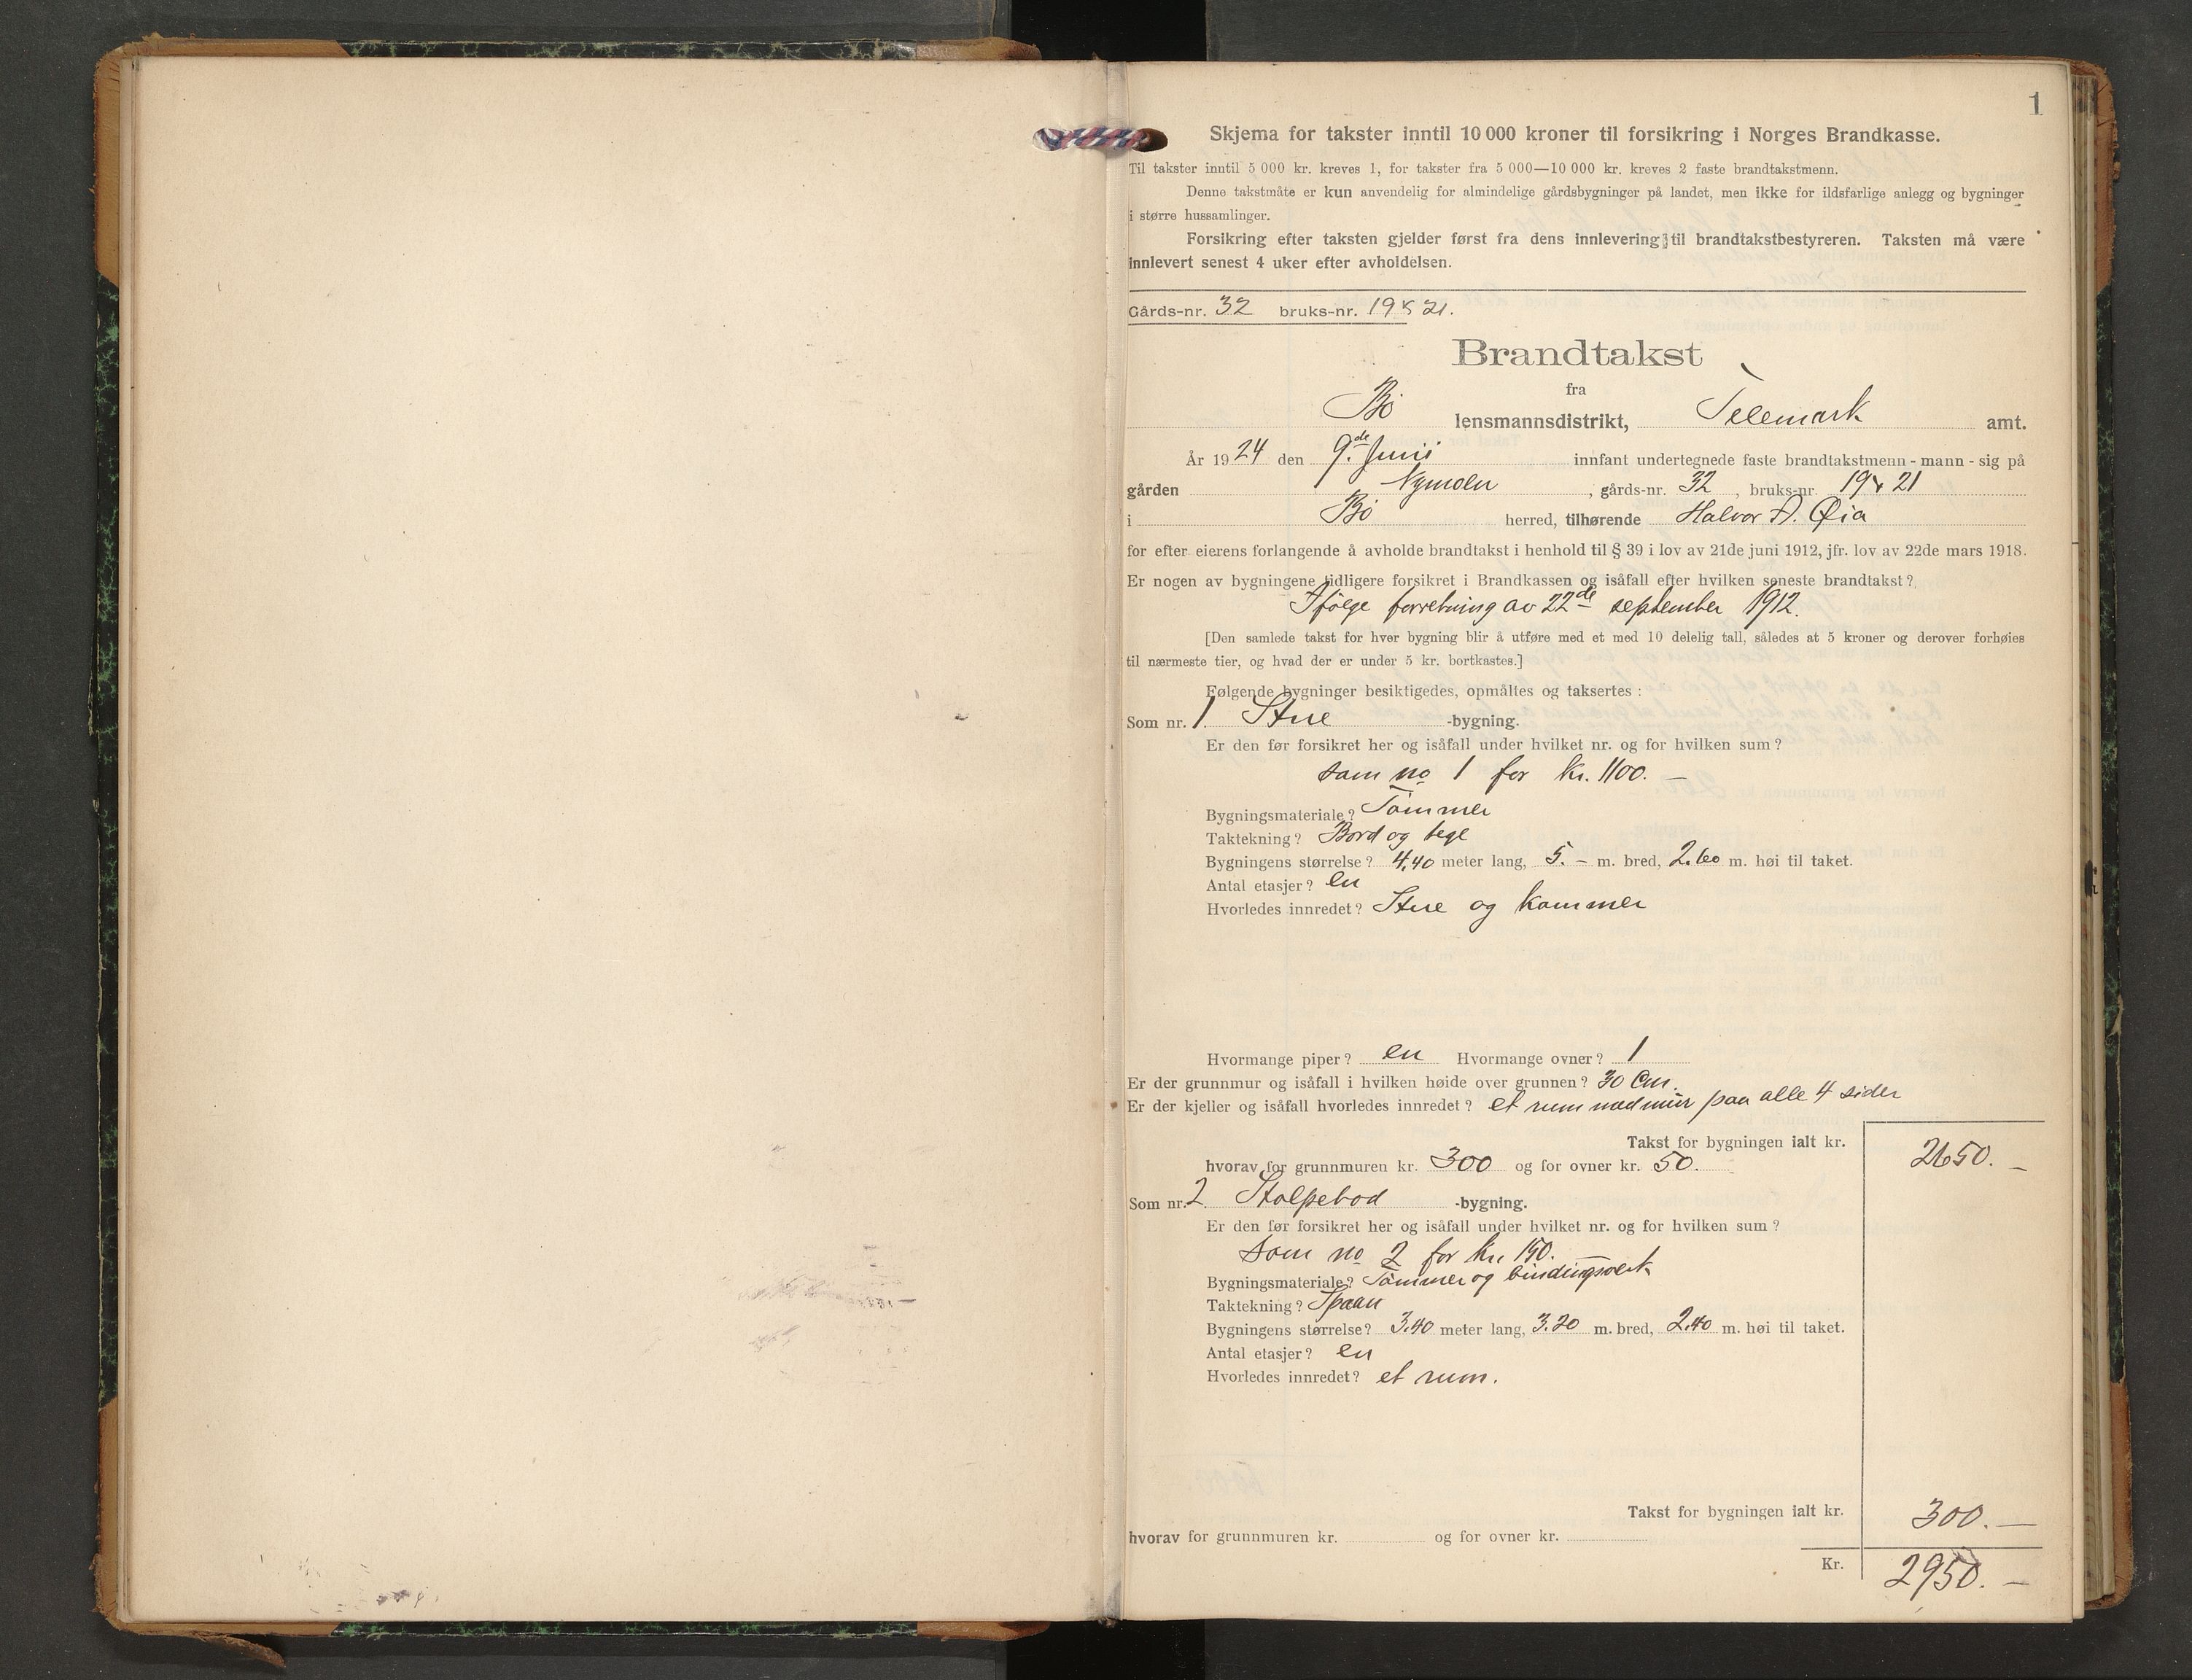 1
Skjema for takster inntil 10 000 kroner til forsikring i Norges Brandkasse.
Til takster inntil 5 000 kr. kreves 1, for takster fra 5 000—10 000 kr. kreves 2 faste brandtakstmenn.
Denne takstmåte er kun anvendelig for almindelige gårdsbygninger på landet, men ikke for ildsfarlige anlegg og bygninger
i større hussamlinger.
Forsikring efter taksten gjelder først fra dens innlevering til brandtakstbestyreren. Taksten må være
innlevert senest 4 uker efter avholdelsen.
Gårds-nr. 32 bruks-nr. 19 & 21.
Brandtakst
fra
Bø lensmannsdistrikt, Telemark amt.
År 1924 den 9.de Juni innfant undertegnede faste brandtakstmenn - mann - sig på
gården Nymoen, gårds-nr. 32, bruks-nr. 19 & 21
i Bø herred, tilhørende Halvor A. Øia
for efter eierens forlangende å avholde brandtakst i henhold til § 39 i lov av 21de juni 1912, jfr. lov av 22de mars 1918.
Er nogen av bygningene tidligere forsikret i Brandkassen og isåfall efter hvilken seneste brandtakst?
Ifølge forretning av 22de september 1912.
[Den samlede takst for hver bygning blir å utføre med et med 10 delelig tall, således at 5 kroner og derover forhøies
til nærmeste tier, og hvad der er under 5 kr. bortkastes.]
Følgende bygninger besiktigedes, opmåltes og taksertes:
Som nr. 1. Stue -bygning.
Er den før forsikret her og isåfall under hvilket nr. og for hvilken sum?
som no 1 for kr. 1100. —
Bygningsmateriale? Tømmer
Taktekning? Bord og tegl
Bygningens størrelse? 4,40 meter lang, 5. — m. bred, 2.60 m. høi til taket.
Antal etasjer? en
Hvorledes innredet? Stue og kammer
Hvormange piper? en Hvormange ovner? 1
Er der grunnmur og isåfall i hvilken høide over grunnen? 30 Cm.
Er der kjeller og isåfall hvorledes innredet? et rum med mur paa alle 4 sider
Takst for bygningen ialt kr. 2650. —
hvorav for grunnmuren kr. 300 og for ovner kr. 50.
Som nr. 2. Stolpebod -bygning.
Er den før forsikret her og isåfall under hvilket nr. og for hvilken sum?
som no 2 for kr. 150. —
Bygningsmateriale? Tømmer og bindingsverk
Taktekning? Spaan
Bygningens størrelse? 3.40 meter lang, 3.20 m. bred, 2.40 m. høi til taket.
Antal etasjer? en
Hvorledes innredet? et rum.
Takst for bygningen ialt kr. 300. —
hvorav for grunnmuren kr. og for ovner kr.
Kr. 2950. —